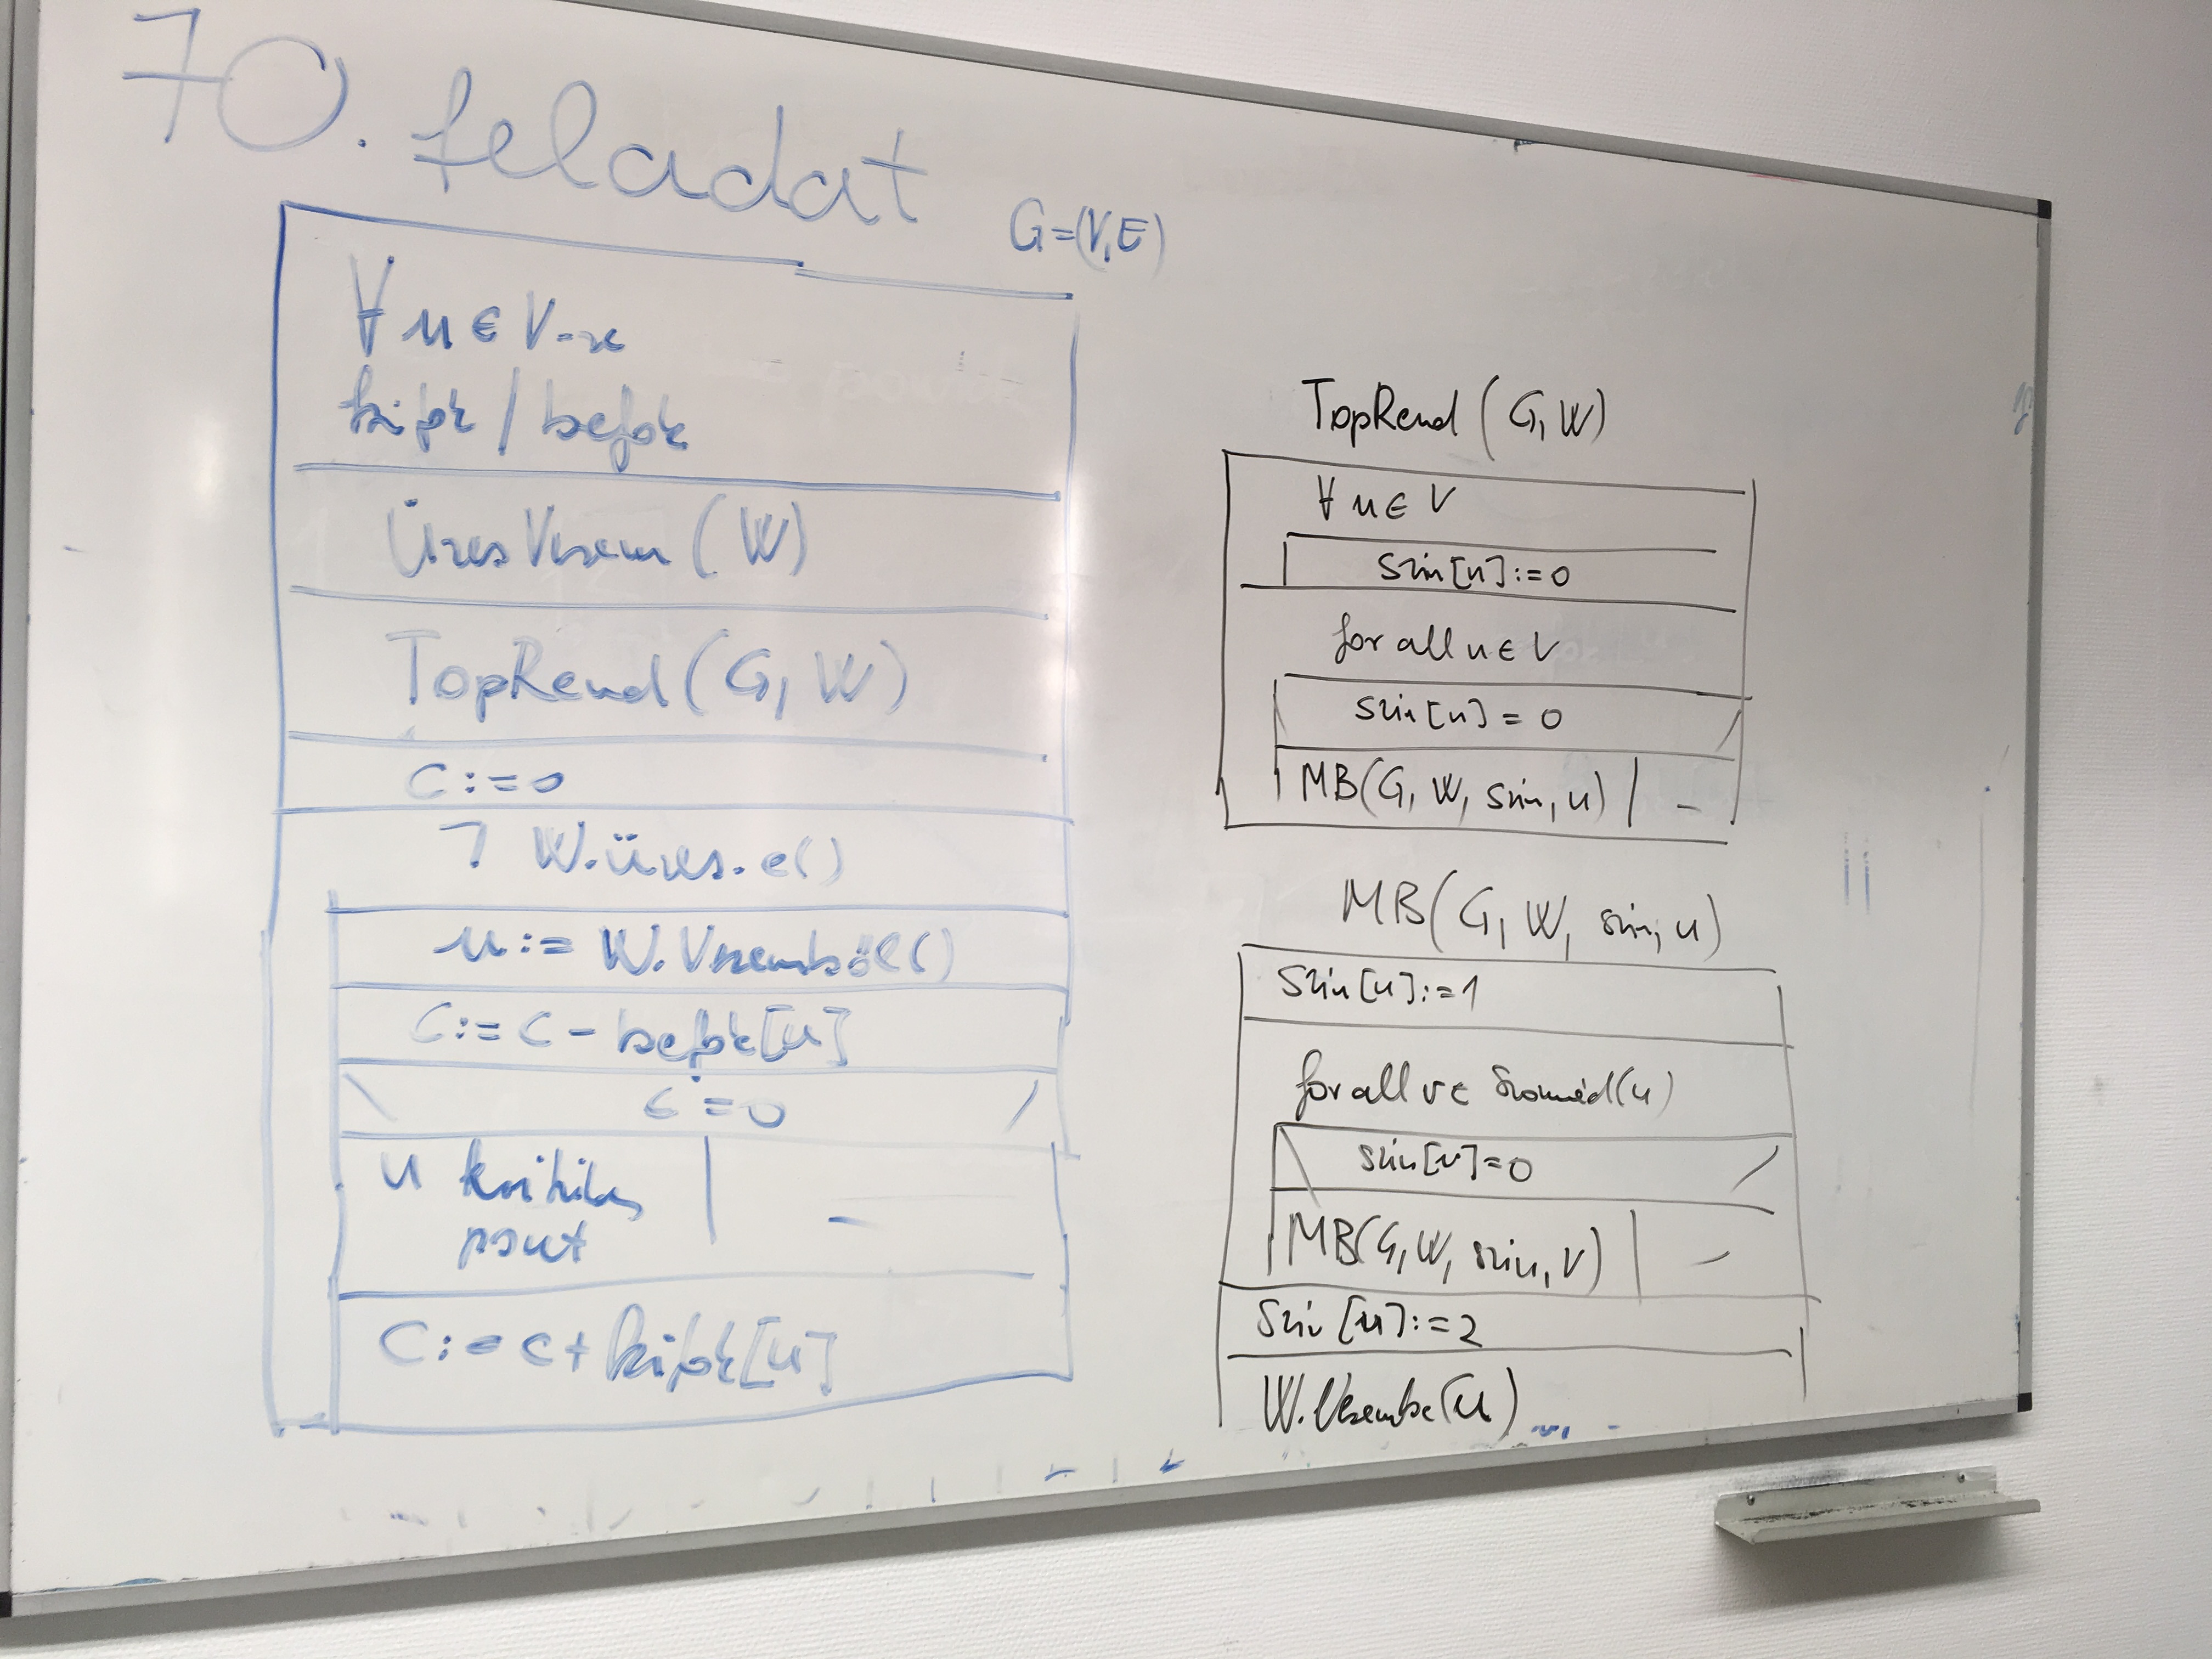 70. feladat
G=(V,E)
∀ u ∈ V-re
kifok / befok
ÜresVerem (W)
TopRend (G, W)
C := 0
¬ W.üres.e()
u := W.Veremből()
C := C - befok[u]
C = 0
u kritikus
pont
–
C := C + kifok[u]
TopRend (G, W)
∀ u ∈ V
Szín[u] := 0
for all u ∈ V
szín[u] = 0
MB(G, W, szín, u) –
MB(G, W, szín, u)
Szín[u] := 1
for all v ∈ Szomszéd(u)
szín[v] = 0
MB(G, W, szín, v) –
Szín[u] := 2
W.Verembe(u)